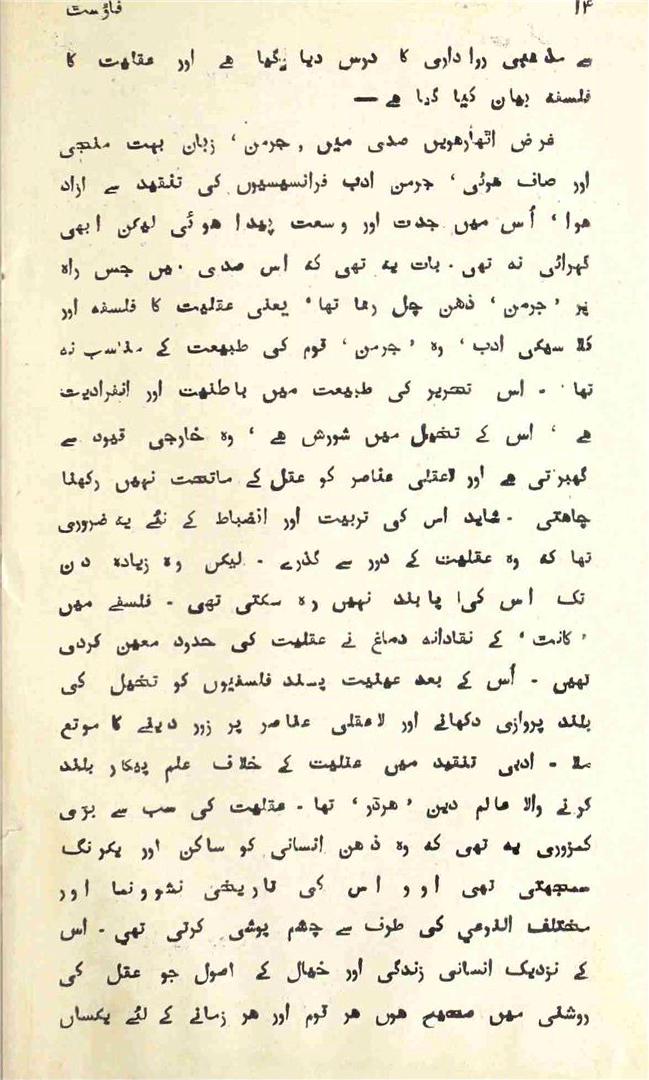 ۱۴ فاؤست
سے مذهبی رواداری کا درس دیا گیا هے اور عقلیت کا
فلسفه بیان کیا گیا هے —
غرض اٹهارهویں صدی میں 'جرمن' زبان بہت منجی
اور صاف هوئی' جرمن ادب فرانسیسیوں کی تنقید سے آزاد
هوا' اُس میں جدت اور وسعت پیدا هوئی لیکن ابهی
گہرائی نه تهی. بات یه تهی که اس صدی میں جس راه
پر 'جرمن' ذهن چل رها تها' یعنی عقلیت کا فلسفه اور
کلاسیکی ادب' وه 'جرمن' قوم کی طبیعت کے مناسب نه
تها - اس تحریر کی طبیعت میں باطنیت اور انفرادیت
هے' اس کے تخیل میں شورش هے' وه خارجی قیود سے
گهبرتی هے اور لاعقلی عناصر کو عقل کے ماتحت نہیں رکهنا
چاهتی - شاید اس کی تربیت اور انضباط کے لئے یه ضروری
تها که وه عقلیت کے دور سے گذرے - لیکن وه زیاده دن
تک اس کی پابند نہیں ره سکتی تهی - فلسفے میں
'کانت' کے نقادانه دماغ نے عقلیت کی حدود معین کردی
تهیں - اُس کے بعد عینیت پسند فلسفیوں کو تخیل کی
بلند پروازی دکهانے اور لاعقلی عناصر پر زور دینے کا موقع
ملا - ادبی تنقید میں عقلیت کے خلاف علم پیکار بلند
کرنے والا عالم دین 'هرڈر' تها - عقلیت کی سب سے بڑی
کمزوری یه تهی که وه ذهن انسانی کو ساکن اور یکرنگ
سمجهتی تهی اور اس کی تاریخی نشوونما اور
مختلف النوعی کی طرف سے چشم پوشی کرتی تهی - اس
کے نزدیک انسانی زندگی اور خیال کے اصول جو عقل کی
روشنی میں صحیح هوں هر قوم اور هر زمانے کے لئے یکساں